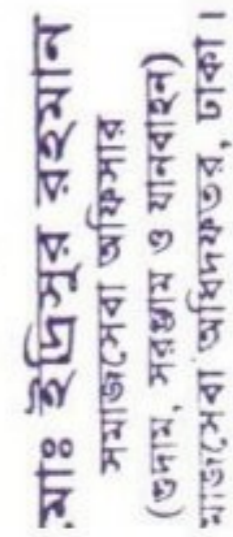 মোঃ ইদ্রিসুর রহমান
সমাজসেবা অফিসার
(গুদাম, সরঞ্জাম ও যানবাহন)
সমাজসেবা অধিদফতর, ঢাকা।